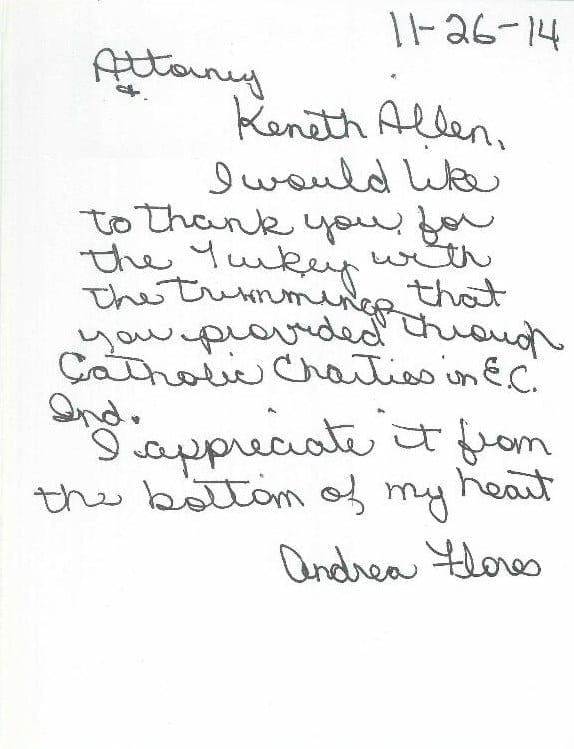 11-26-14
Attorney
&
Keneth Allen,
I would like
to thank you for
the Turkey with
the trimmings that
you provided through
Catholic Charities in E.C.
Ind.
I appreciate it from
the bottom of my heart
Andrea Flores